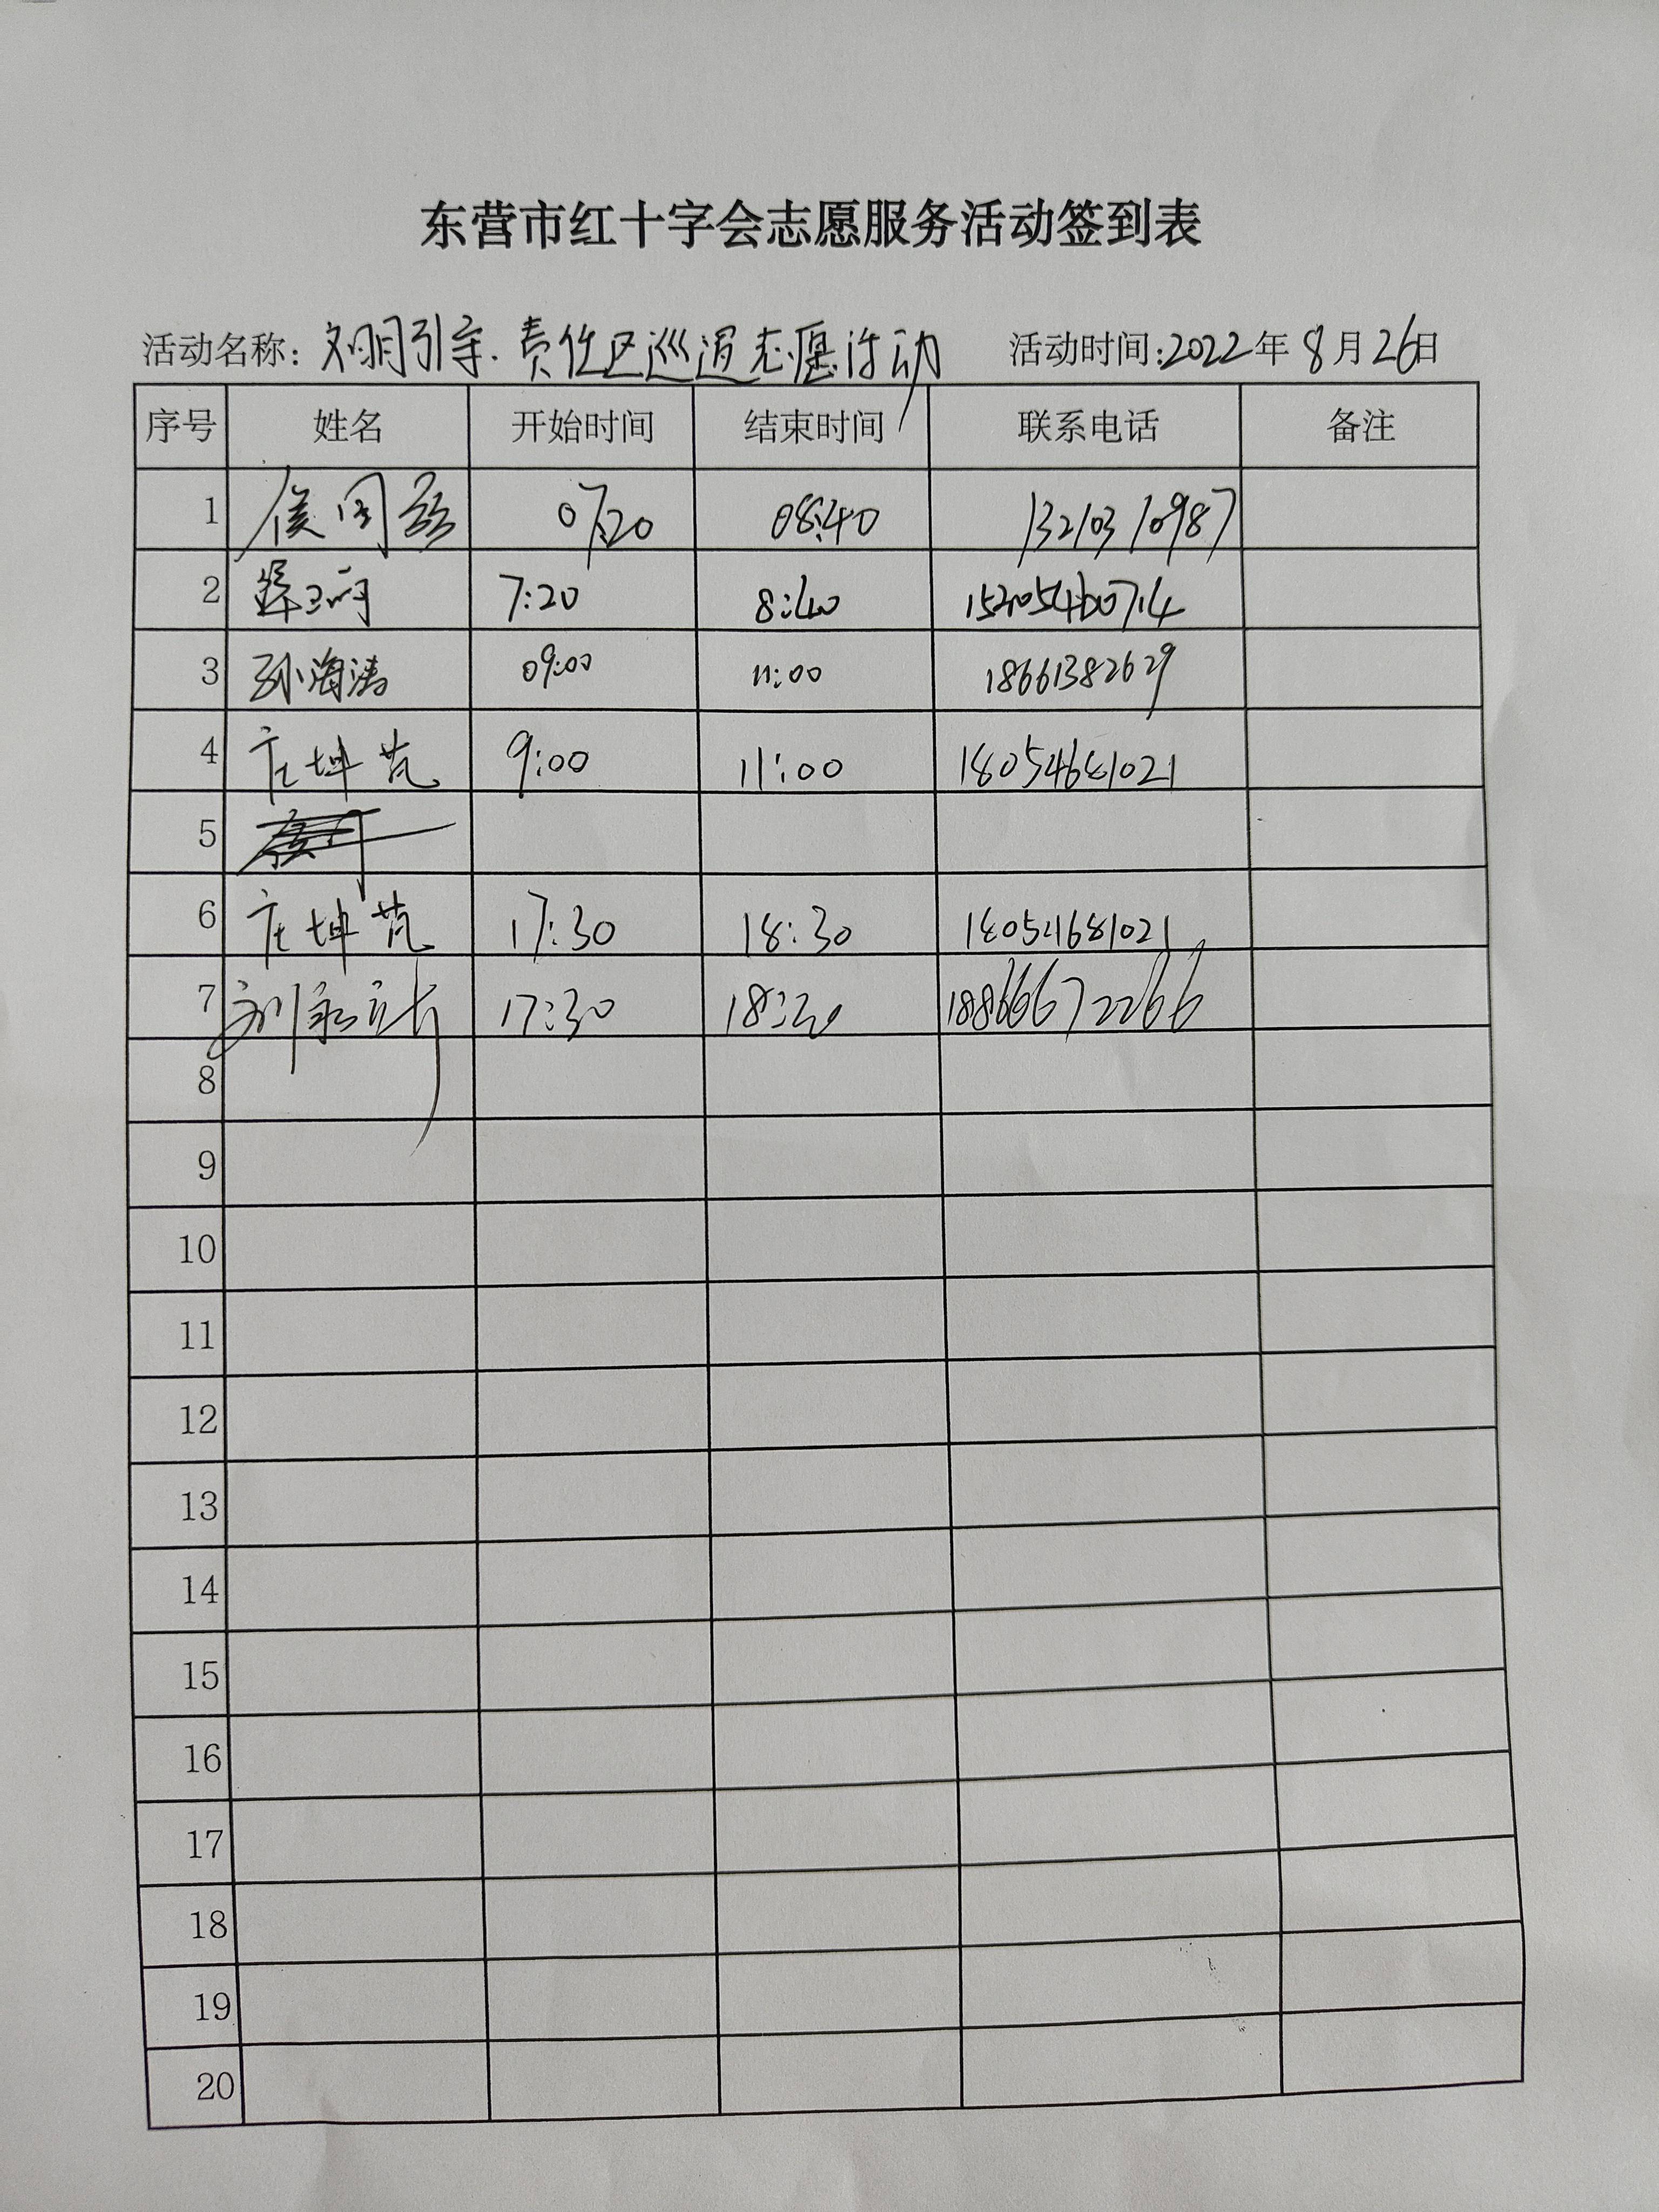 东营市红十字会志愿服务活动签到表
活动名称: 文明引导.责任区巡逻志愿活动 活动时间:2022年8月26日
序号 姓名 开始时间 结束时间 联系电话 备注
1 侯国 07:20 08:40 13210310987
2 7:20 8:40 15205460714
3 孙海涛 09:00 11:00 18661382629
4 庄坤范 9:00 11:00 18054681021
5
6 庄坤范 17:30 18:30 18054681021
7 刘 17:30 18:30 18866672266
8
9
10
11
12
13
14
15
16
17
18
19
20